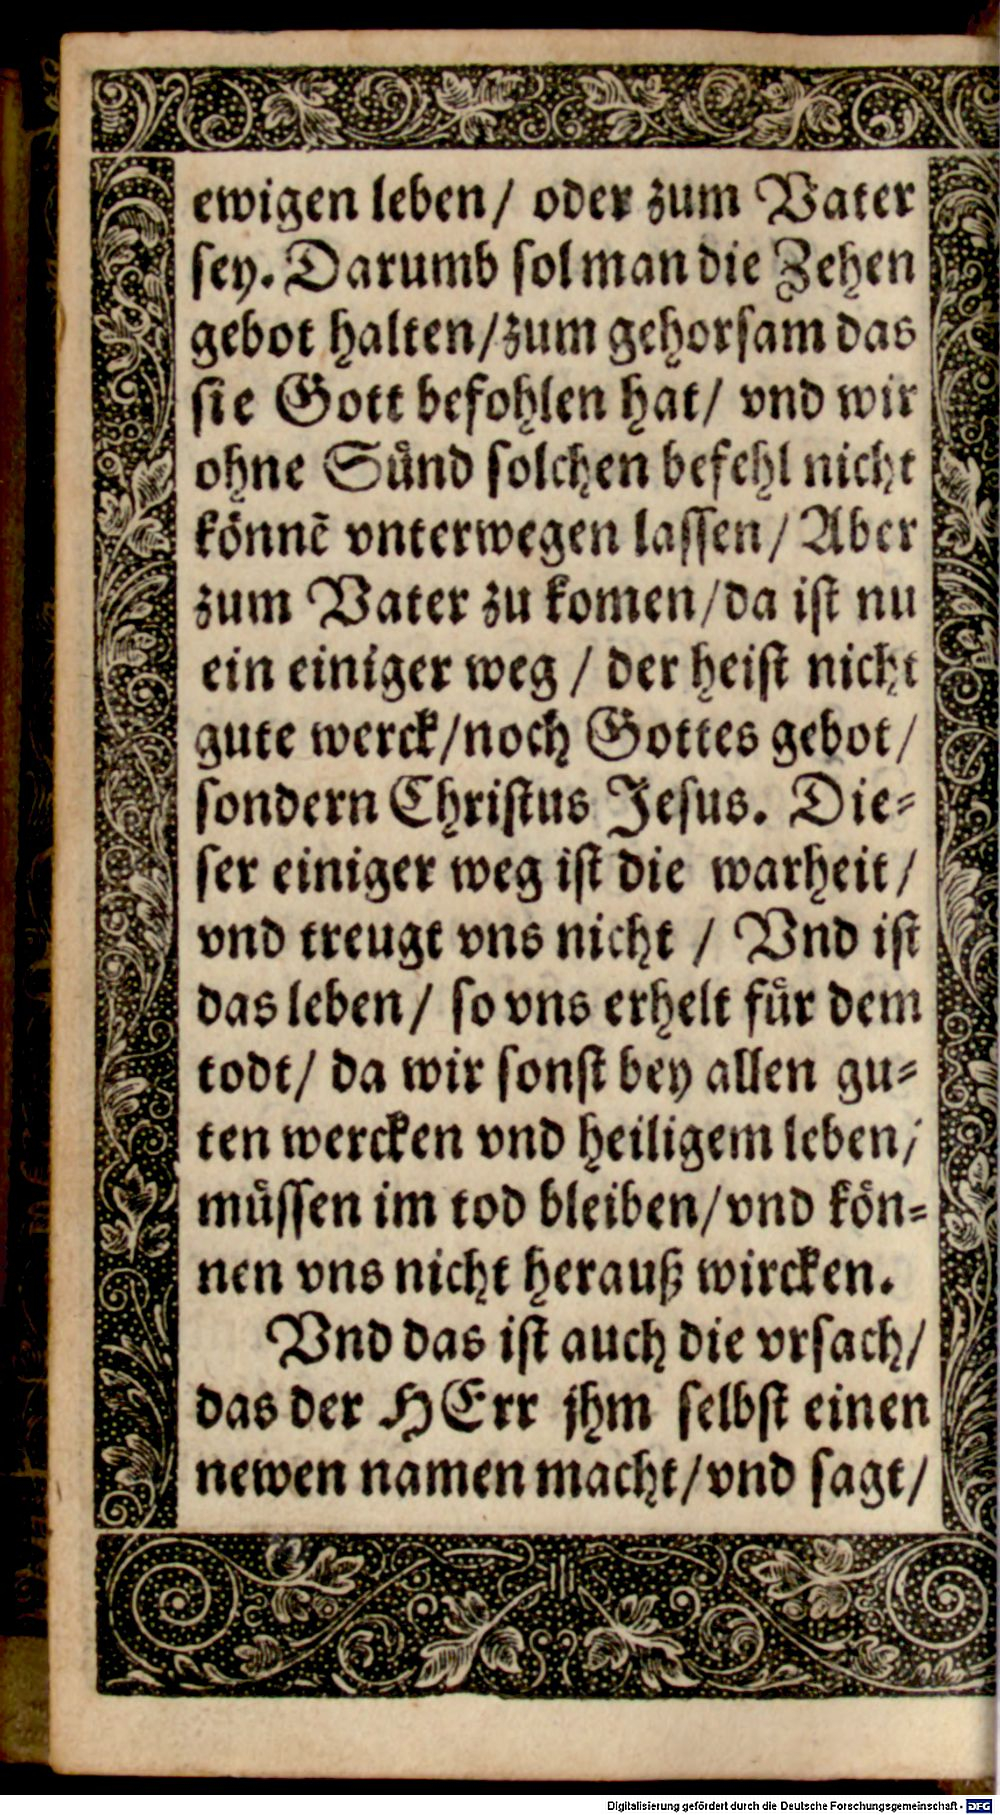 ewigen leben/ oder zum Vater
sey. Darumb sol man die Zehen
gebot halten/ zum gehorsam das
sie Gott befohlen hat/ vnd wir
ohne Sünd solchen befehl nicht
könnē vnterwegen lassen/ Aber
zum Vater zu komen/ da ist nu
ein einiger weg / der heist nicht
gute werck/ noch Gottes gebot/
sondern Christus Jesus. Die⸗
ser einiger weg ist die warheit/
vnd treugt vns nicht / Vnd ist
das leben/ so vns erhelt für dem
todt/ da wir sonst bey allen gu⸗
ten wercken vnd heiligem leben/
müssen im tod bleiben/ vnd kön⸗
nen vns nicht herauß wircken.
Vnd das ist auch die vrsach/
das der HErr jhm selbst einen
newen namen macht/ vnd sagt/
Digitalisierung gefördert durch die Deutsche Forschungsgemeinschaft - DFG